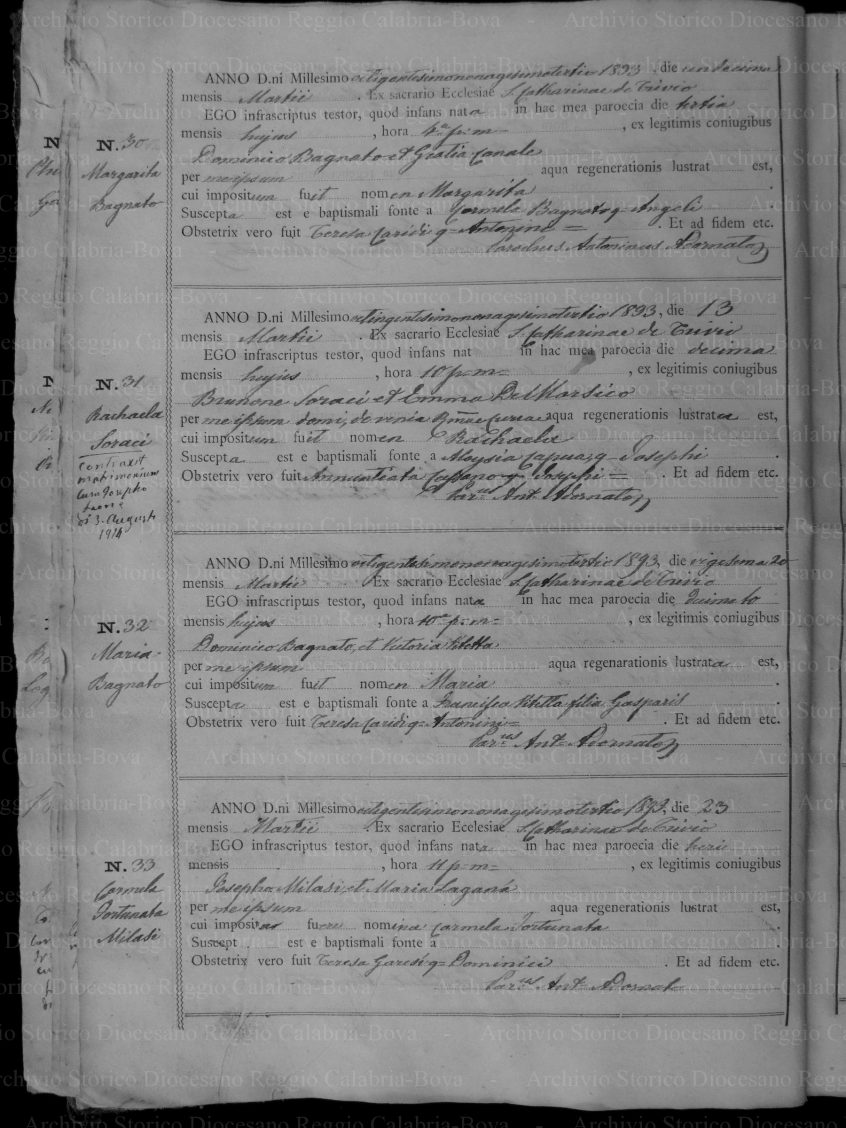 N. 30
Margarita
Bagnato
ANNO D.ni Millesimo octigentesimononagesimotertio 1893, die undecima
mensis Martii. Ex sacrario Ecclesiae S. Catharinae de Trivio
EGO infrascriptus testor, quod infans nata in hac mea paroecia die tertia
mensis hujus, hora 4 p.m=, ex legitimis coniugibus
Dominico Bagnato et Gratia Canale
per me ipsum aqua regenerationis lustrat est,
cui impositum fuit nomen Margarita
Suscepta est e baptismali fonte a Carmela Bagnato q= Angeli
Obstetrix vero fuit Teresa Caridi q= Antonini =. Et ad fidem etc.
Parochus Antoninus Adornato
N. 31
Rachaela
Soraci
contraxit
matrimonium
cum Joseph
di 3. Augusti
1914
ANNO D.ni Millesimo octingentesimononagesimotertio 1893, die 13
mensis Martii. Ex sacrario Ecclesiae S. Catharinae de Trivio
EGO infrascriptus testor, quod infans nat in hac mea paroecia die decima
mensis hujus, hora 10 p.m=, ex legitimis coniugibus
Brunone Soraci et Emma Del Marsico
per me ipsum domi, de venia aqua regenerationis lustrata est,
cui impositum fuit nomen Rachaela
Suscepta est e baptismali fonte a Aloysia Capua q= Josephi.
Obstetrix vero fuit Annuntiata Cassano q= Josephi =. Et ad fidem etc.
Par.us Ant. Adornato
N. 32
Maria
Bagnato
ANNO D.ni Millesimo octigentesimononagesimotertio 1893, die vigesema 20
mensis Martii Ex sacrario Ecclesiae S. Catharinae de Trivio
EGO infrascriptus testor, quod infans nata in hac mea paroecia die
mensis hujus, hora 10 p.m=, ex legitimis coniugibus
Dominico Bagnato, et Victoria
per me ipsum aqua regenarationis lustrata est,
cui impositum fuit nomen Maria.
Suscepta est e baptismali fonte a Francisca filia Gasparis
Obstetrix vero fuit Teresa Caridi q= Antonini=. Et ad fidem etc.
Par.us Ant= Adornato
N. 33
Carmela
Fortunata
Milasi
ANNO D.ni Millesimo octigentesimononagesimotertio 1893, die 23
mensis Martii. Ex sacrario Ecclesiae S. Catharinae de Trivio
EGO infrascriptus testor, quod infans nata in hac mea paroecia die heri
mensis, hora 11 p.m=, ex legitimis coniugibus
Josepho Milasi et Maria Laganà
per me ipsum aqua regenerationis lustrat est,
cui imposita fuere nomina Carmela Fortunata.
Suscept. est e baptismali fonte a.
Obstetrix vero fuit Teresa q= Dominici. Et ad fidem etc.
Par.us Ant= Adornato
Archivio Storico Diocesano Reggio Calabria-Bova